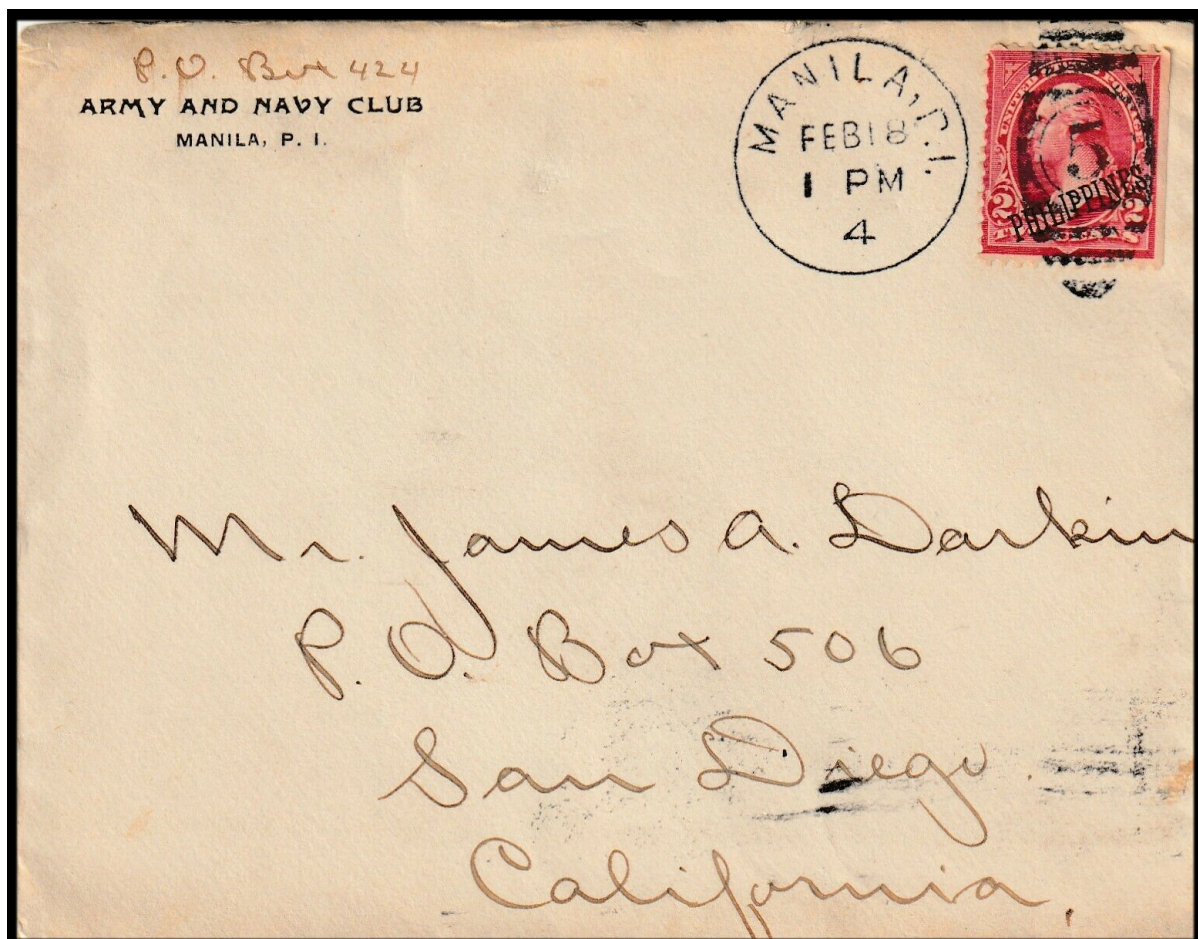 P.O. Box 424
ARMY AND NAVY CLUB
MANILA, P. I.
MANILA, P.I.
FEB 18
1 PM
4
5
PHILIPPINES
2 2
Mr. James A. Darkin
P.O. Box 506
San Diego
California,